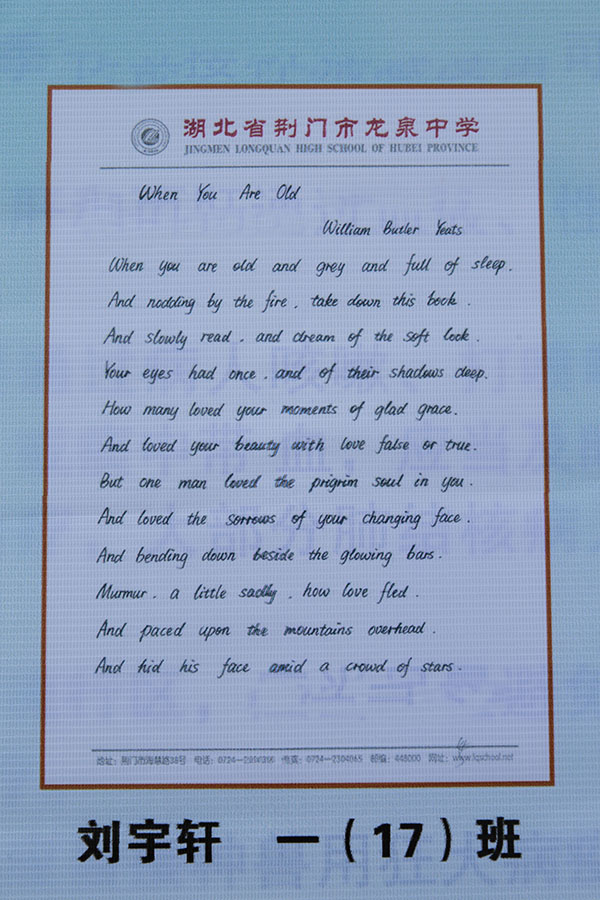 湖北省荆门市龙泉中学
JINGMEN LONGQUAN HIGH SCHOOL OF HUBEI PROVINCE
When You Are Old
William Butler Yeats
When you are old and grey and full of sleep.
And nodding by the fire. take down this book.
And slowly read. and dream of the soft look.
Your eyes had once. and of their shadows deep.
How many loved your moments of glad grace.
And loved your beauty with love false or true.
But one man loved the prigrim soul in you.
And loved the sorrows of your changing face.
And bending down beside the glowing bars.
Murmur. a little sadly. how love fled.
And paced upon the mountains overhead.
And hid his face amid a crowd of stars.
地址：荆门市海慧路38号 电话：传真：0724—2304065 邮编：448000 网址：www.lqschool.net
刘宇轩 一（17）班